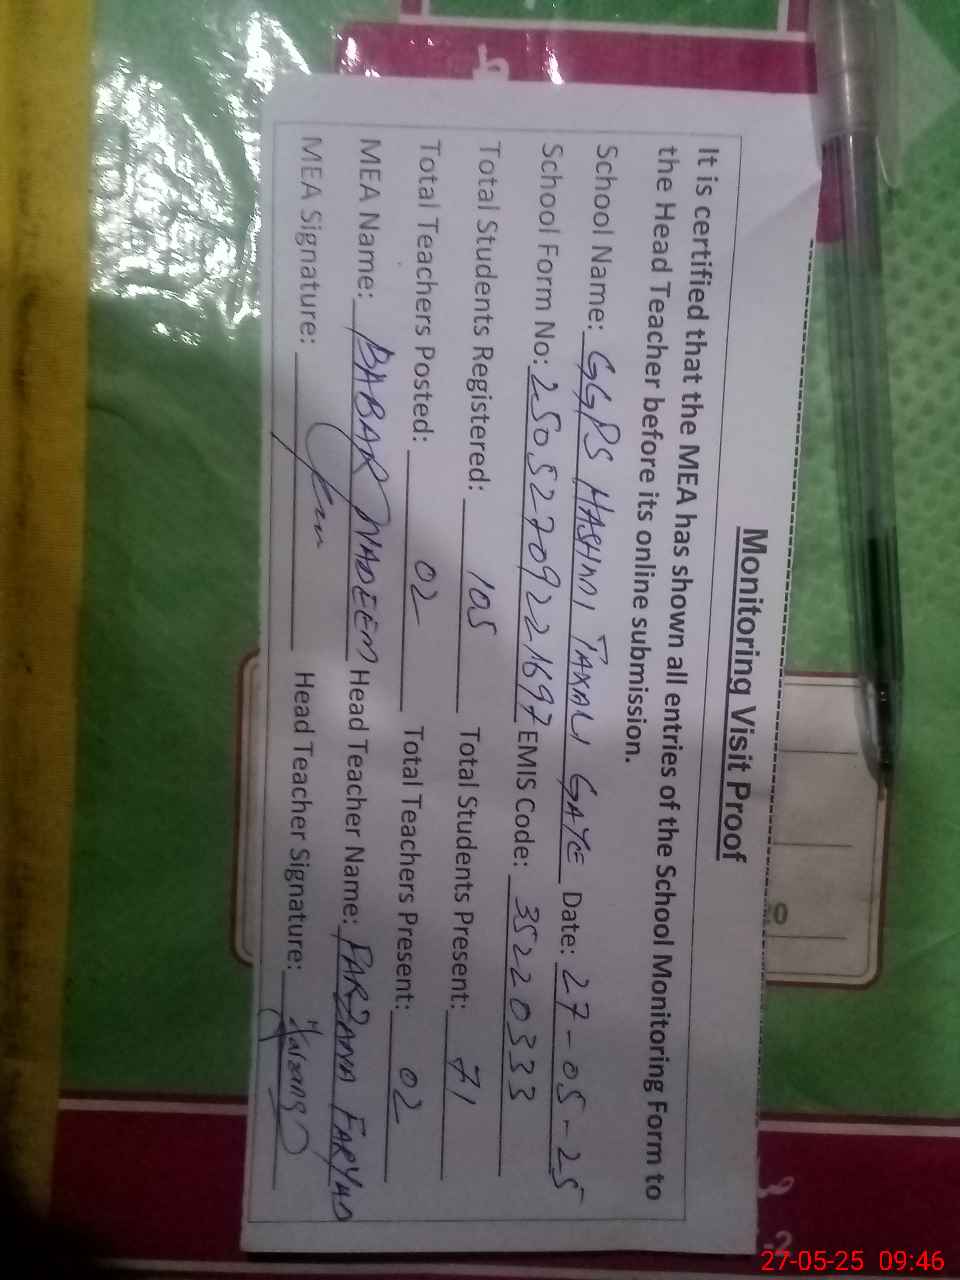 Monitoring Visit Proof
It is certified that the MEA has shown all entries of the School Monitoring Form to
the Head Teacher before its online submission.
School Name: GGPS HASHMI TAXALI GATE Date: 27-05-25
School Form No: 25052709221697 EMIS Code: 35220333
Total Students Registered: 105 Total Students Present: 71
Total Teachers Posted: 02 Total Teachers Present: 02
MEA Name: BABAR NADEEM Head Teacher Name: FARZANA FARYAD
MEA Signature: Head Teacher Signature: Farzana
27-05-25 09:46